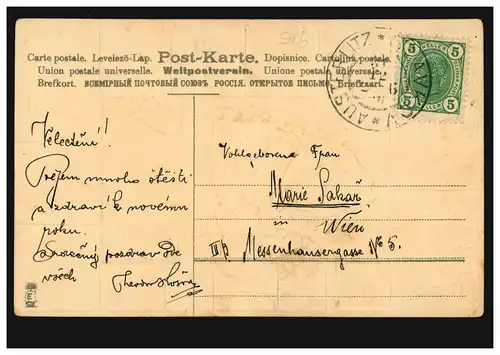 Carte postale. Levelező-Lap. Post-Karte. Dopisnice. Cartolina postale.
Union postale universelle. Weltpostverein. Unione postale universale.
Brefkort. ВСЕМІРНЫЙ ПОЧТОВЫЙ СОЮЗЪ РОССІЯ. ОТКРЫТОЕ ПИСЬМО. Brevkaart.
AUSTERLITZ
5 HELLER 5
5 5
Velectění!
Přejem mnoho štěstí
a zdraví k novému
roku.
Srdečný pozdrav ode
všech
Wohlgeborene Frau
Marie
in
Wien
III/3 Messenhausergasse No 5.
E